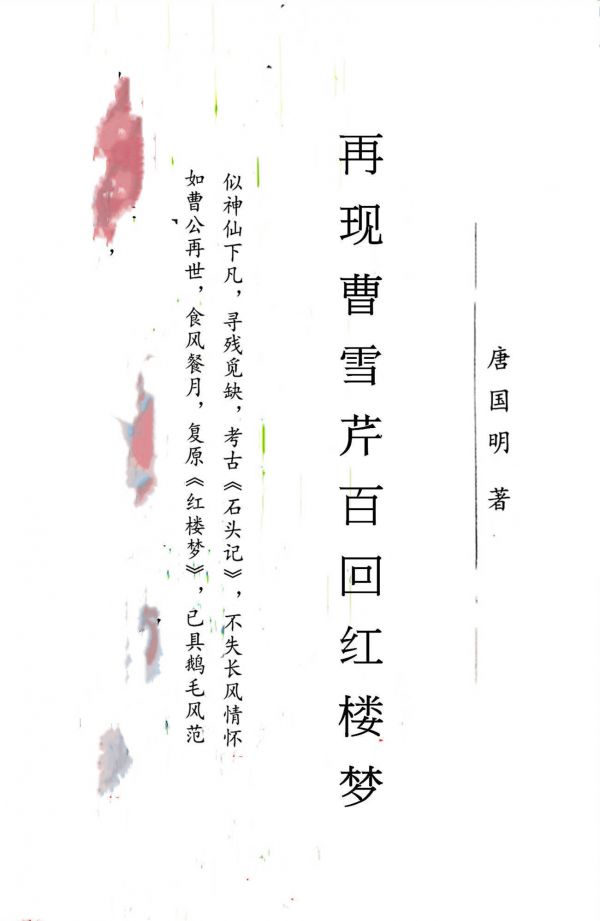 唐国明 著
再现曹雪芹百回红楼梦
似神仙下凡，寻残觅缺，考古《石头记》，不失长风情怀
如曹公再世，食风餐月，复原《红楼梦》，已具鹅毛风范